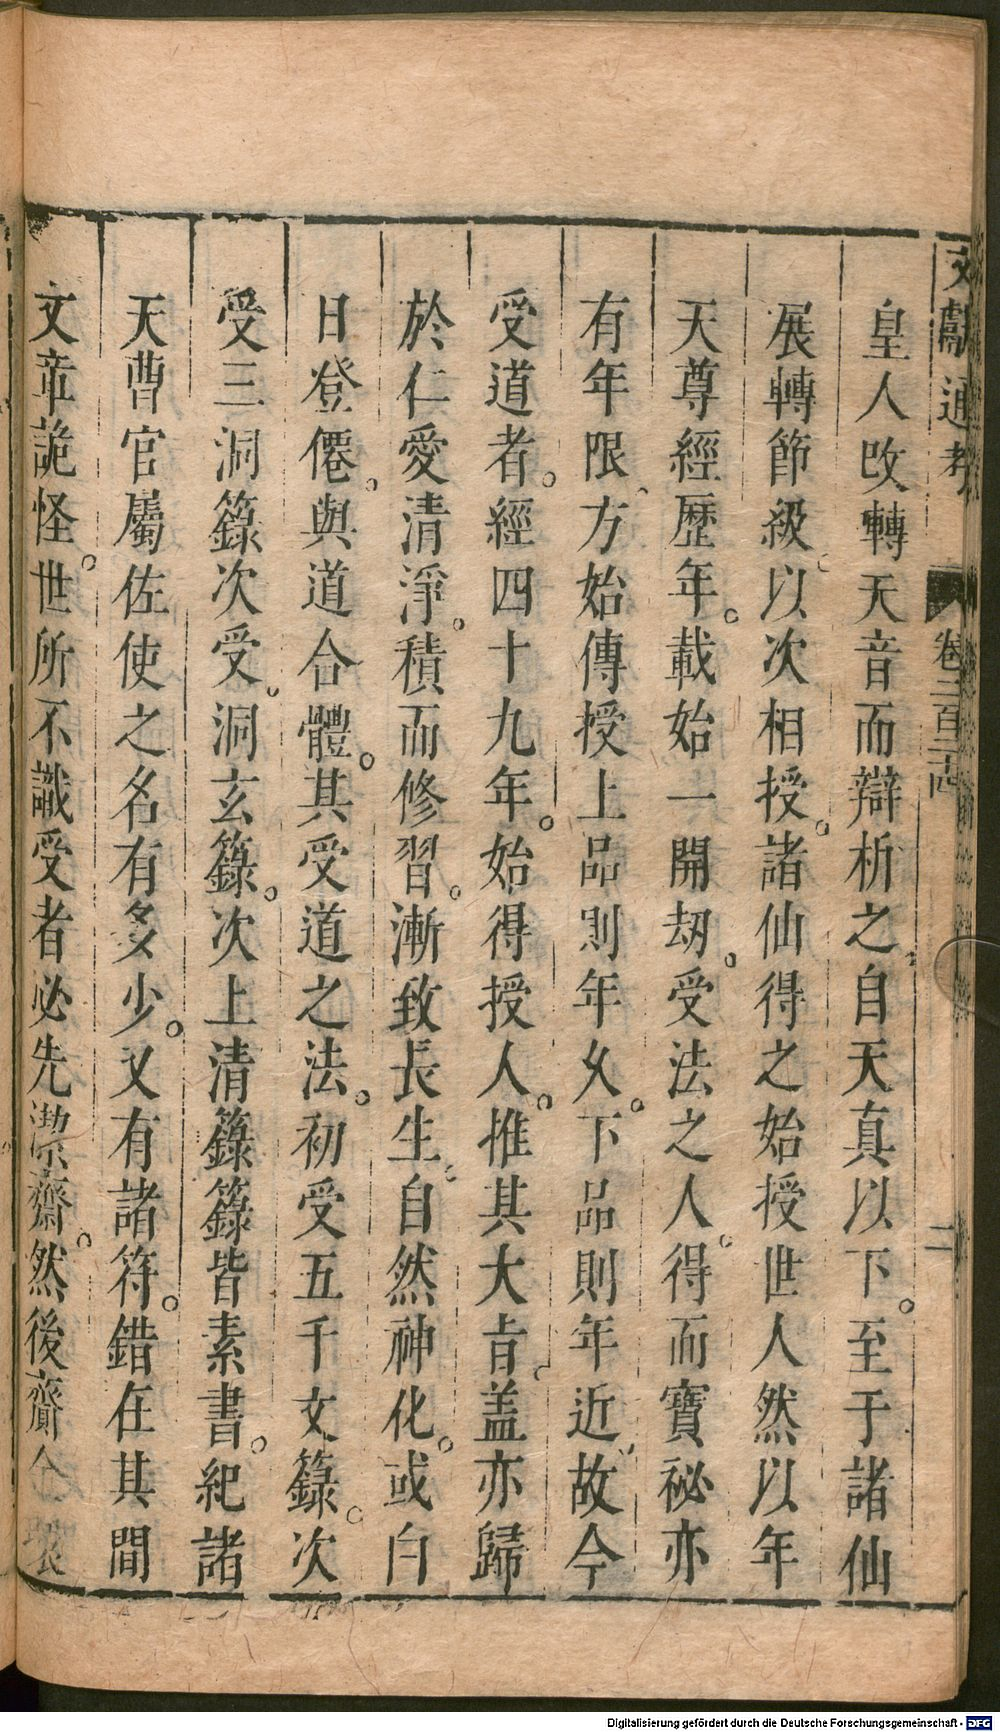 文獻通考 卷二百二十四 二
皇人改轉天音而辯析之自天真以下。至于諸仙
展轉節級。以次相授。諸仙得之始授世人然以年
天尊經歷年。載始一開劫。受法之人。得而寶祕亦
有年限。方始傳授上品則年久。下品則年近。故今
受道者。經四十九年。始得授人。推其大旨。蓋亦歸
於仁愛清淨。積而修習。漸致長生。自然神化。或白
日登僊。與道合體。其受道之法。初受五千文籙。次
受三洞籙次受。洞玄籙。次上清籙籙皆素書。紀諸
天曹官屬佐使之名有多少。又有諸符。錯在其間
文章詭怪。世所不識受者必先潔齋。然後齎金環
Digitalisierung gefördert durch die Deutsche Forschungsgemeinschaft - DFG